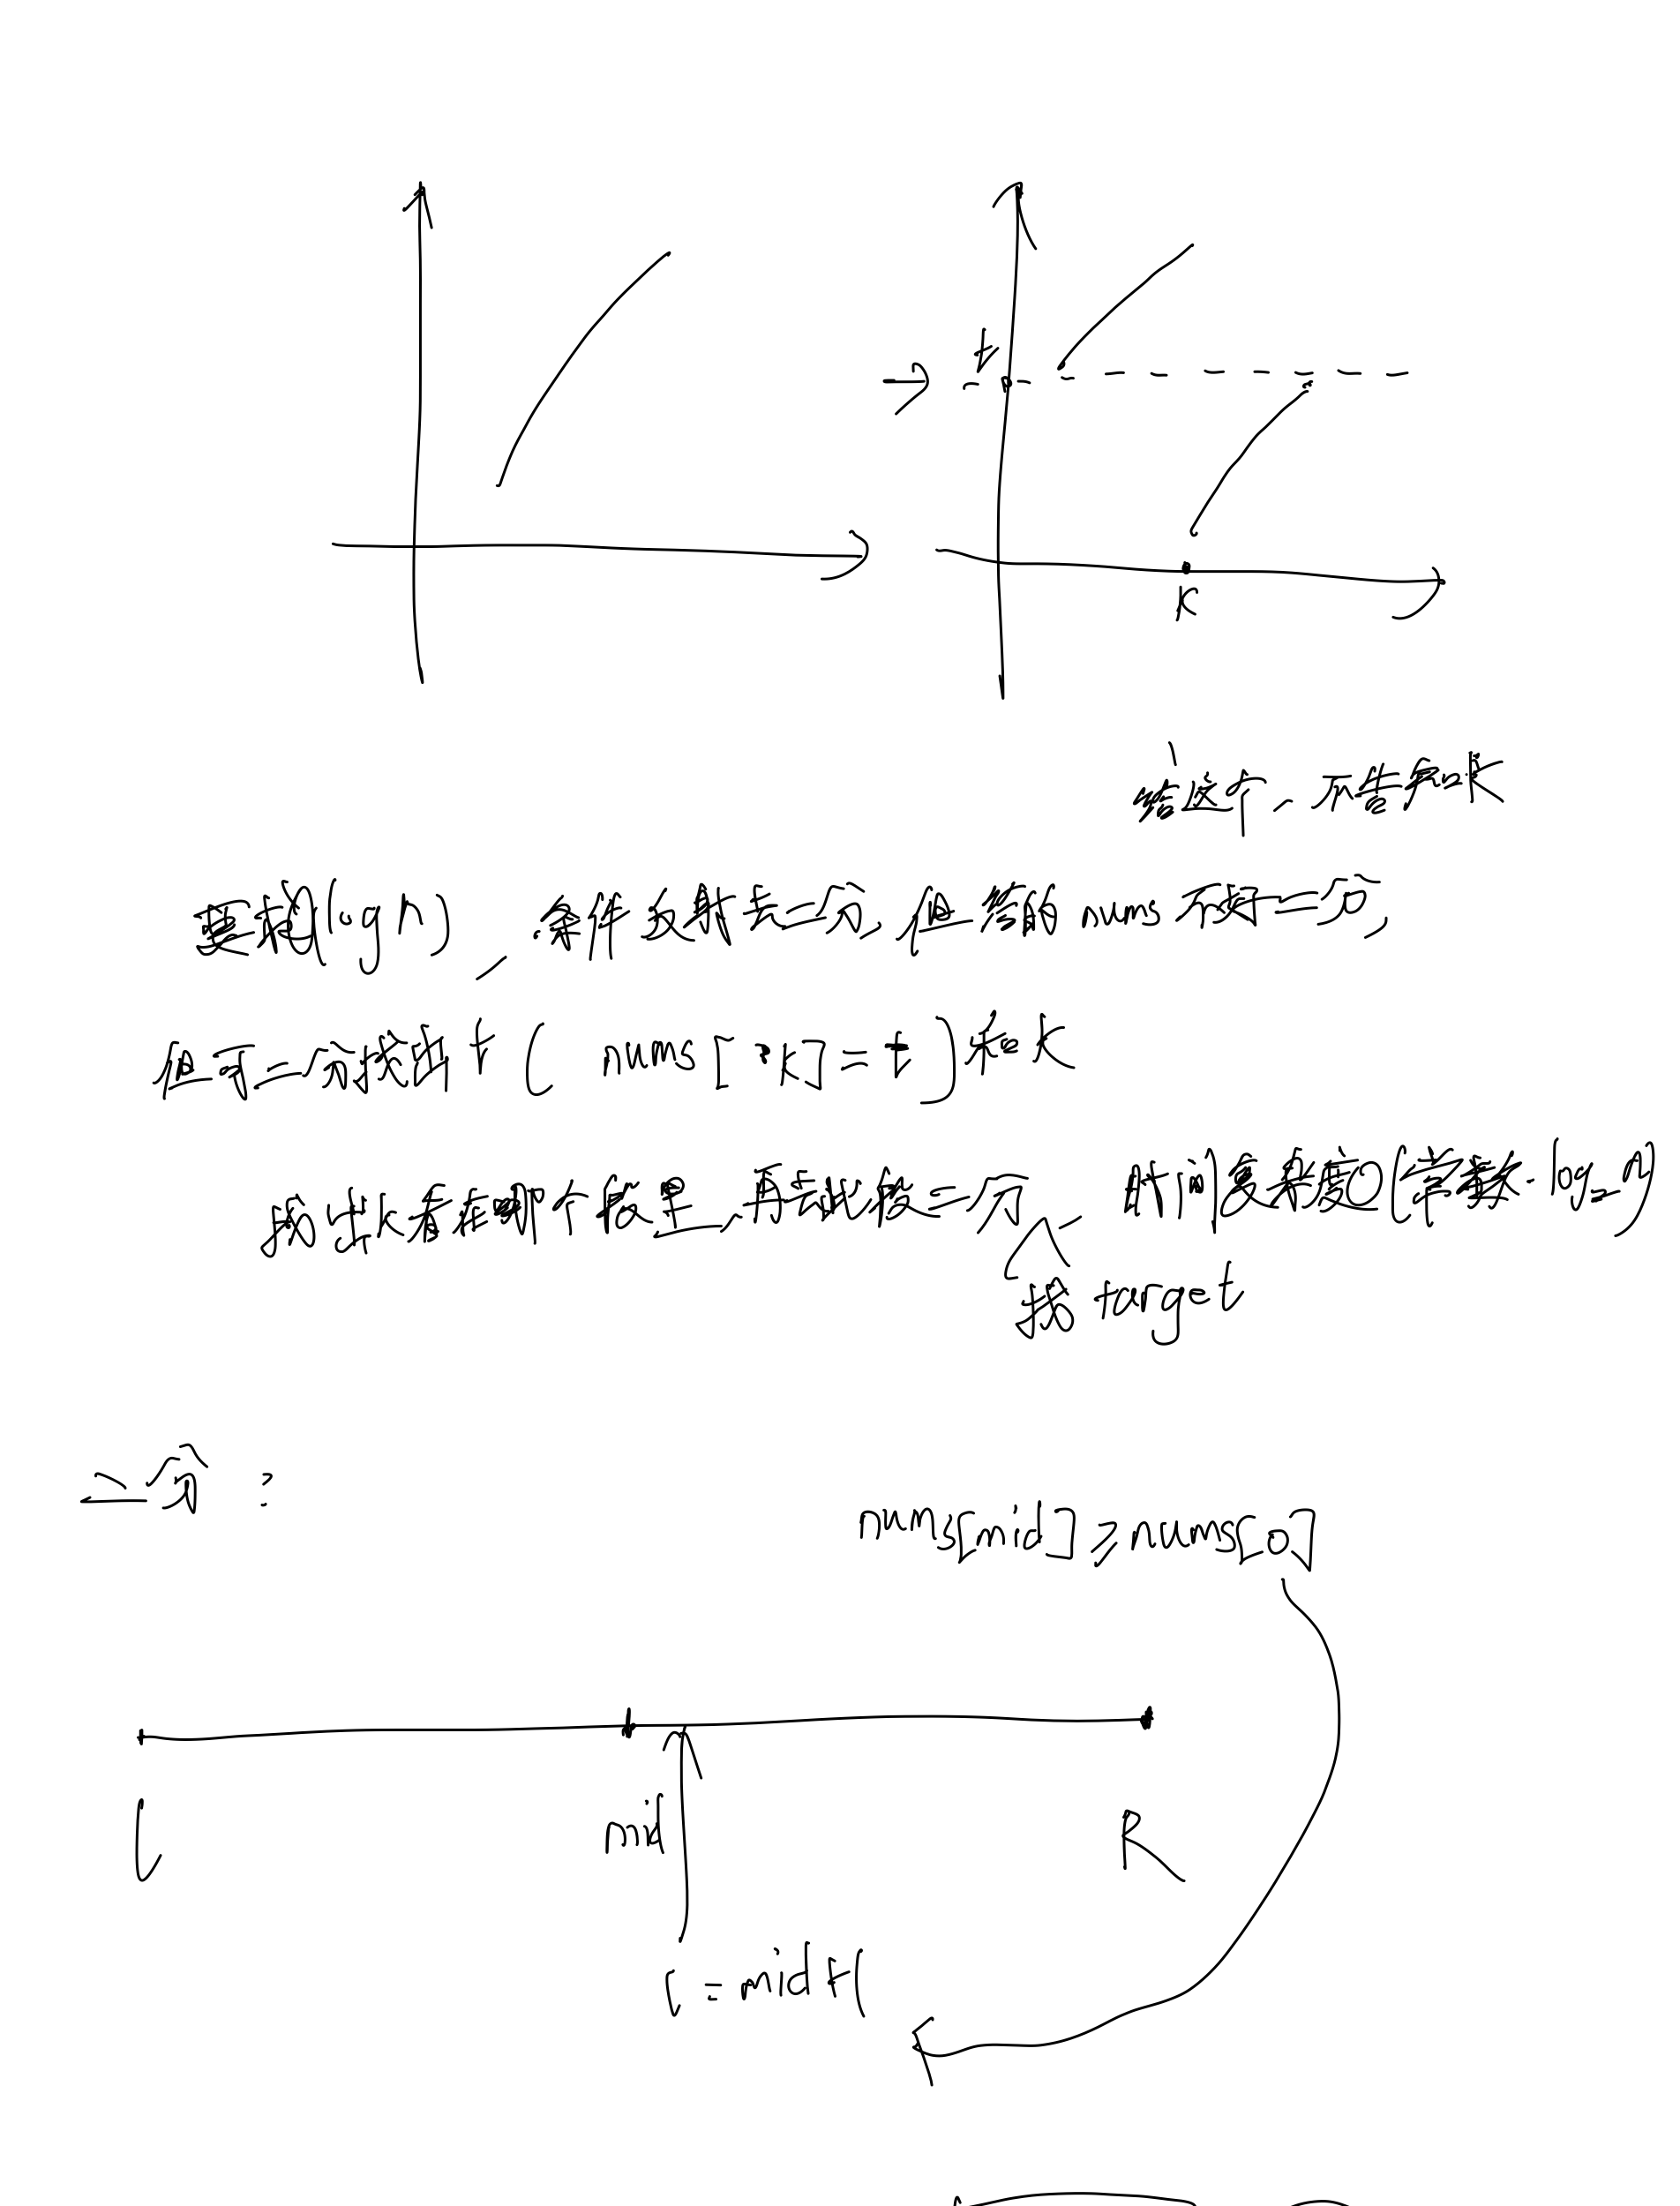 t
k
给这个,不告知k
要求O(logn),条件反射去二分,但给的nums不能二分,
但可二分找断点(nums[k]=t)和k
找出k看在哪个段里,再继续二分,时间复杂度O(常数·log₂n)
找target
二分:
nums[mid]≥nums[0]
L
mid
R
l=mid+1